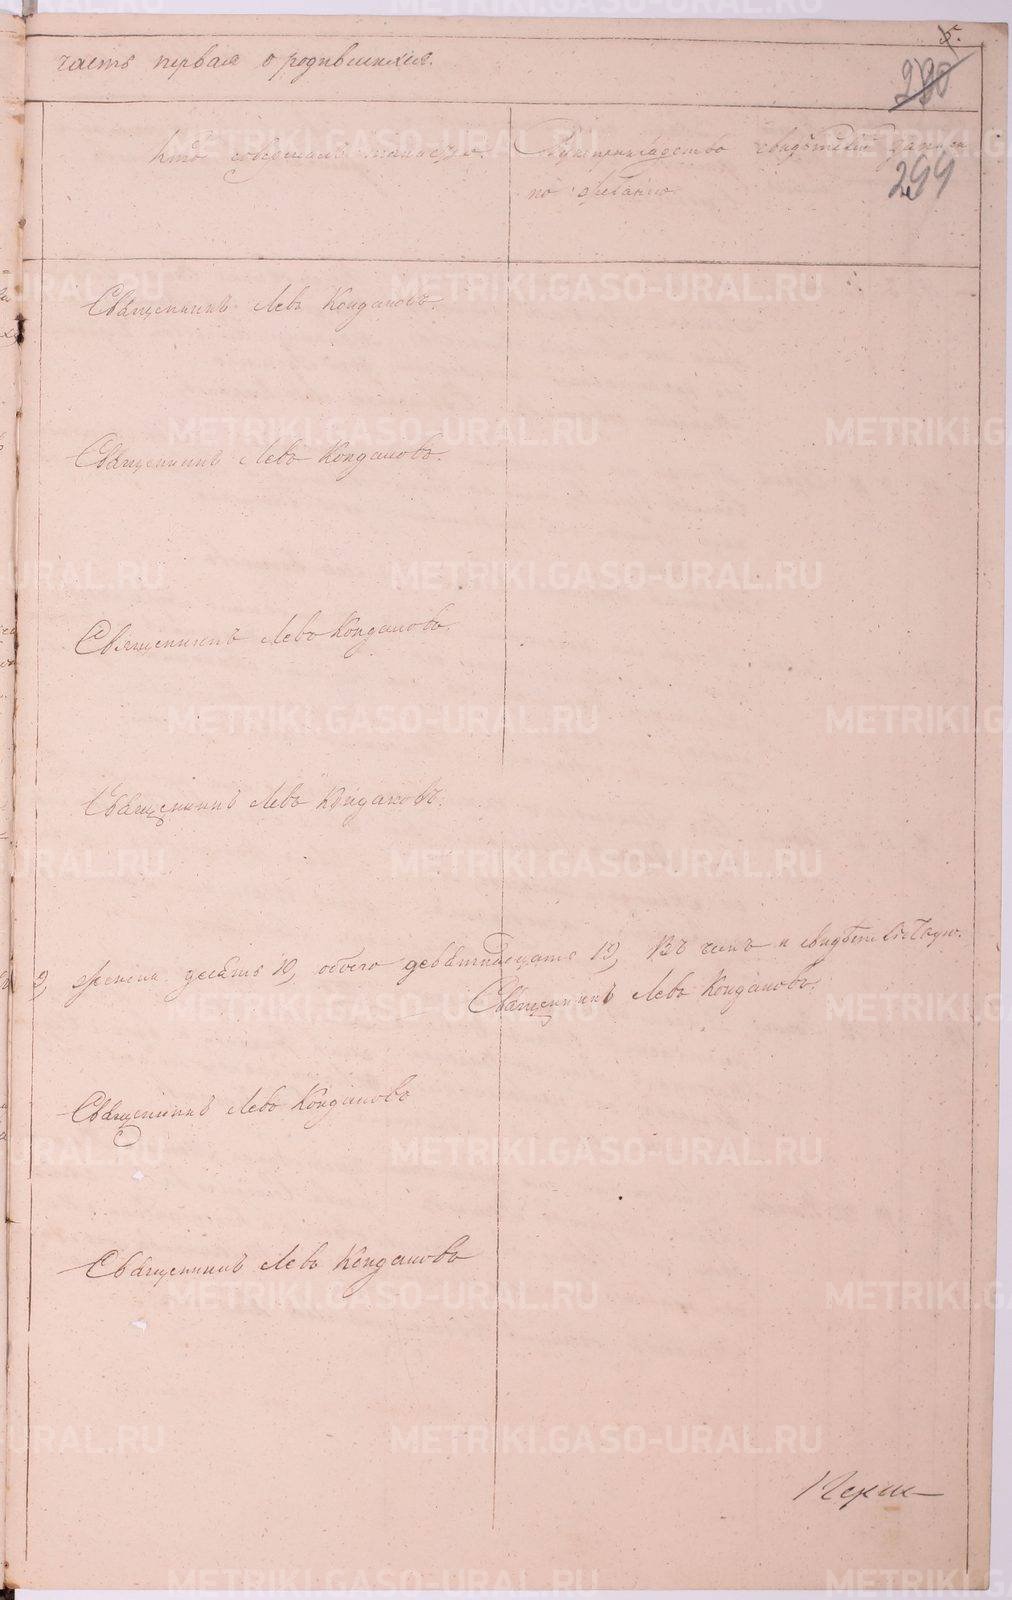 5.
часть первая о родившихся.
280
Кто совершалъ таинство.
Рукоприкладство свидѣтелей записи
по желанію.
299
Священникъ Левъ Кондаковъ.
Священникъ Левъ Кондаковъ.
Священникъ Левъ Кондаковъ.
Священникъ Левъ Кондаковъ.
9, женска десять 10, обоего девятнадцать 19, въ чемъ и свидѣтельствую.
Священникъ Левъ Кондаковъ.
Священникъ Левъ Кондаковъ
Священникъ Левъ Кондаковъ
METRIKI.GASO-URAL.RU